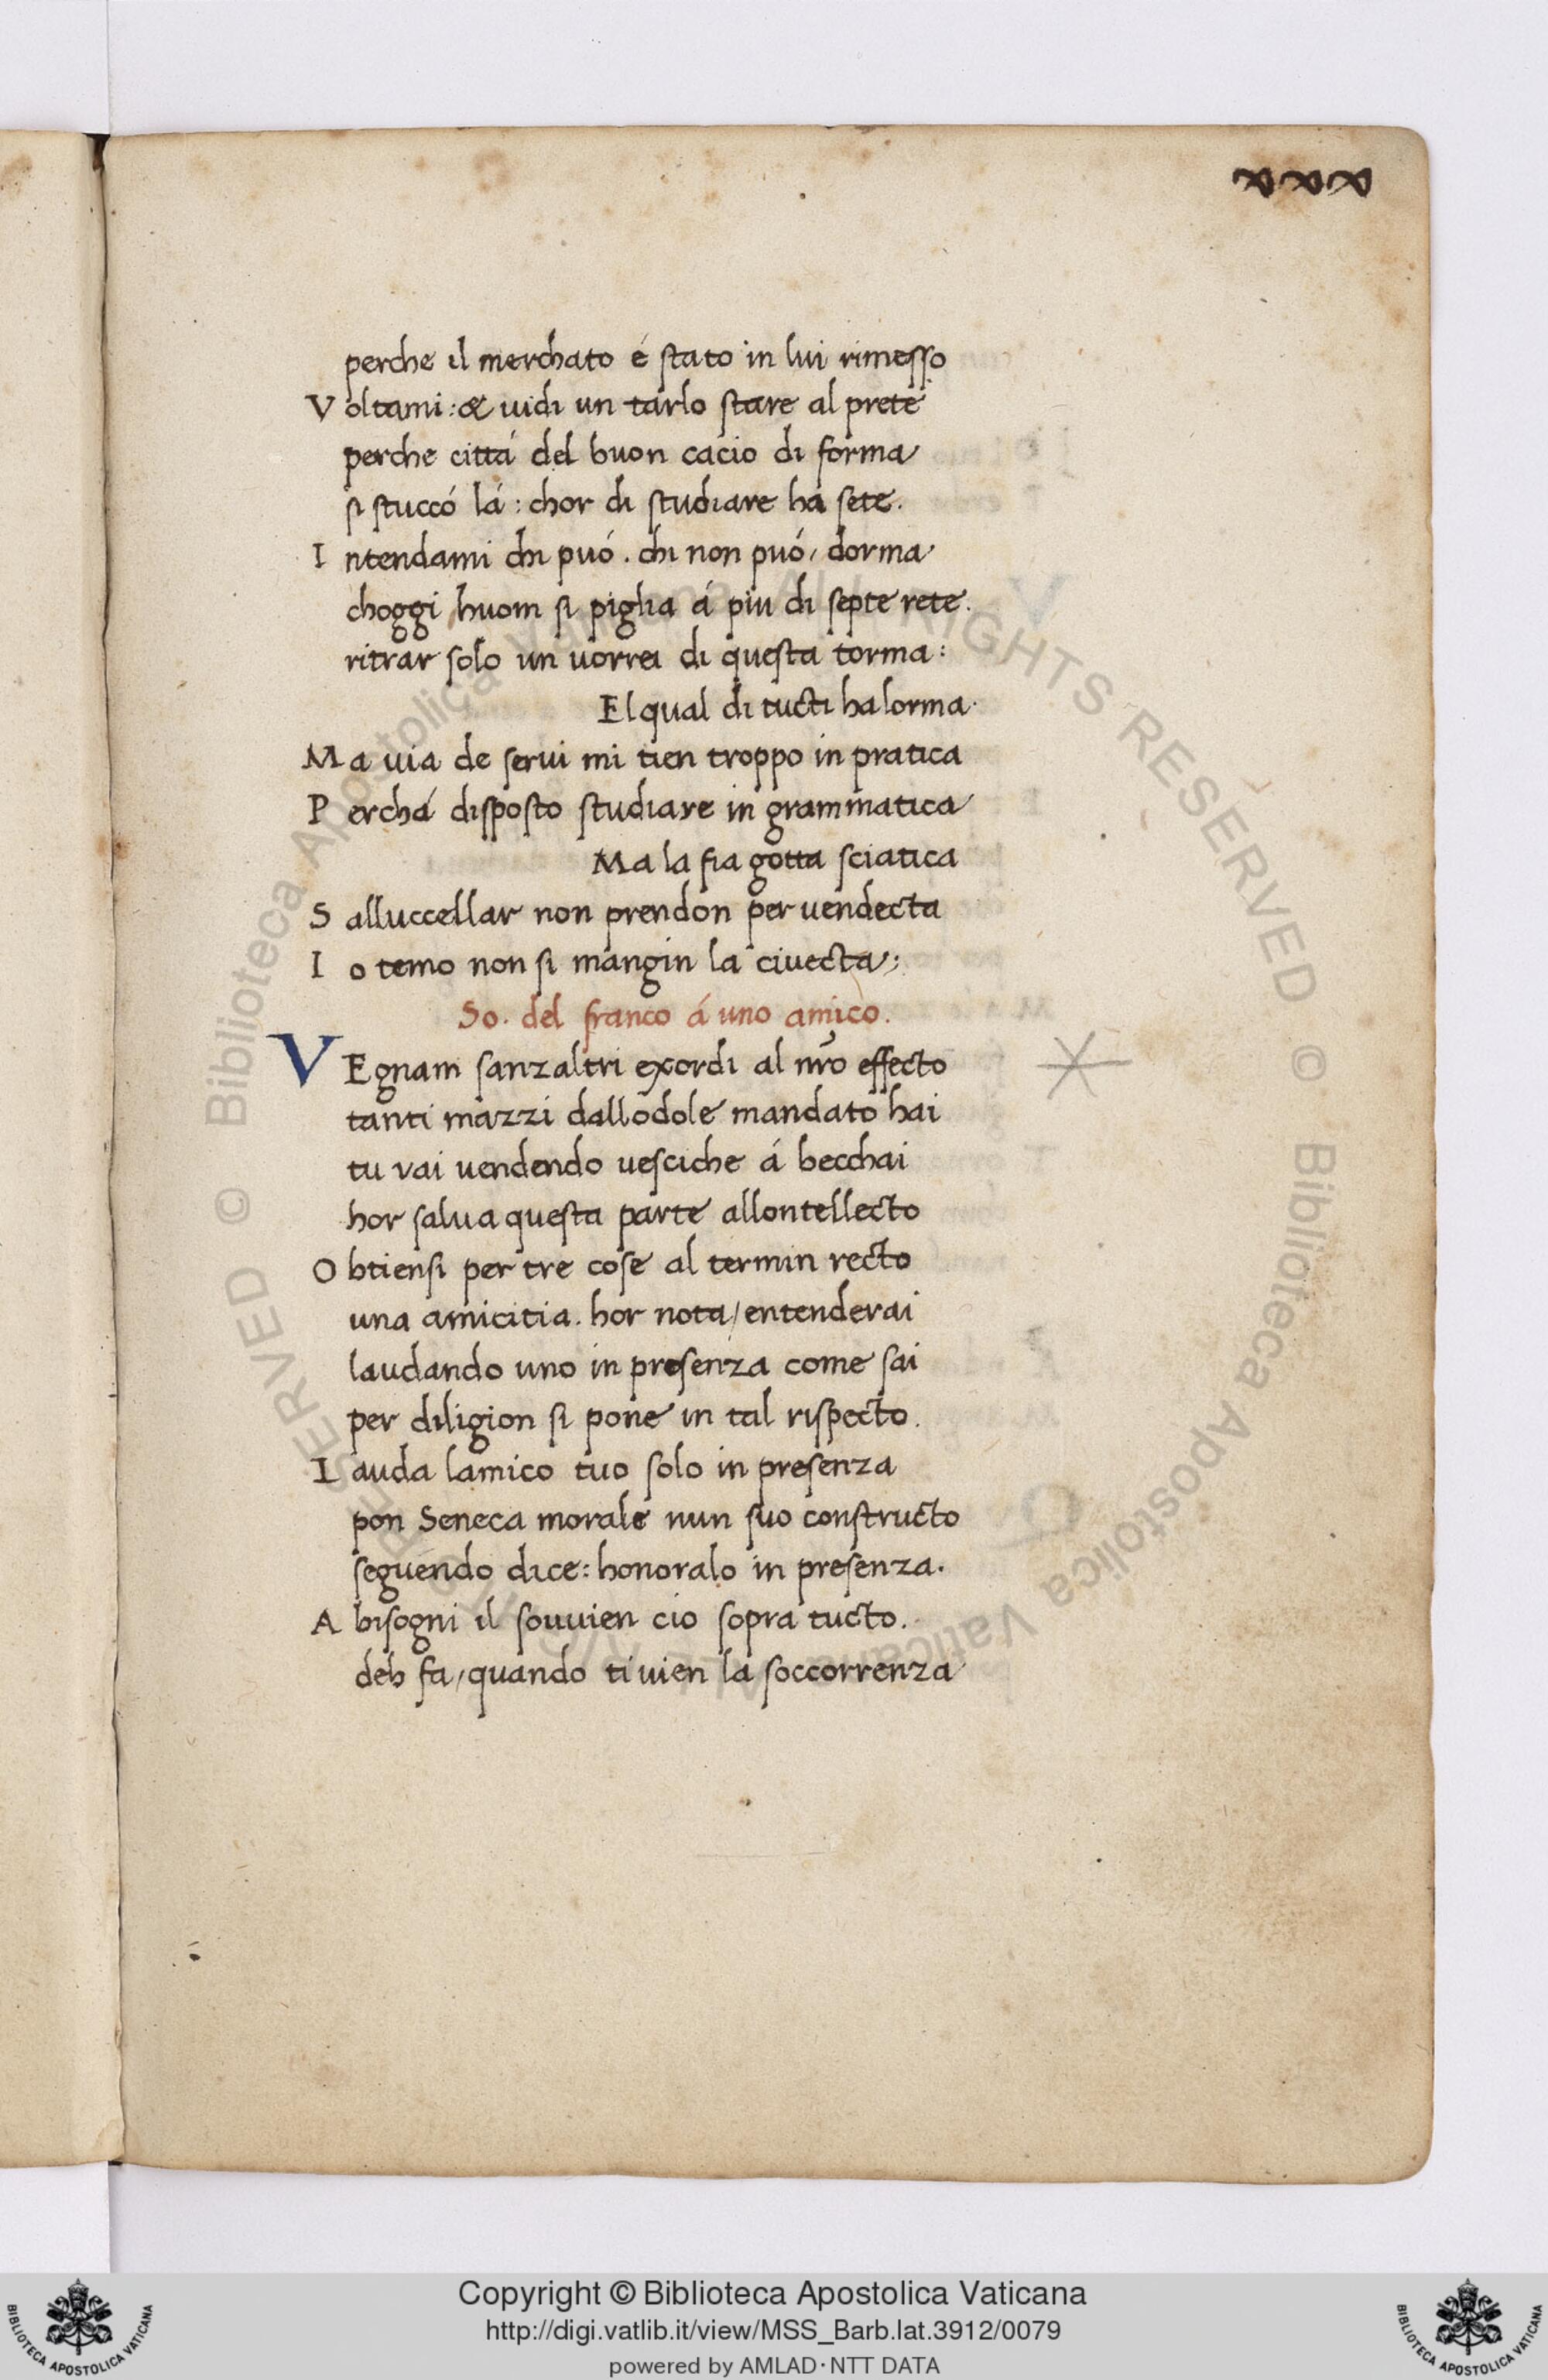 xxx
perche il merchato é stato in lui rimesso
V oltami: & uidi un tarlo stare al prete
perche cittá del buon cacio di forma
si stuccó lá: chor di studiare há sete.
I ntendami chi puó. chi non puó, dorma
choggi huom si piglia á piu di septe rete.
ritrar solo un uorrei di questa torma:
El qual di tucti ha lorma.
M a uia de serui mi tien troppo in pratica
P erchá disposto studiare in grammatica
Ma la fia gotta sciatica
S alluccellar non prendon per uendecta
I o temo non si mangin la ciuecta;
So. del franco á uno amico.
V Egnam sanzaltri exordi al nro effecto
tanti mazzi dallodole mandato hai
tu vai uendendo uesciche á becchai
hor salua questa parte allontellecto
O btiensi per tre cose al termin recto
una amicitia. hor nota/entenderai
laudando uno in presenza come sai
per diligion si pone in tal rispecto.
L auda lamico tuo solo in presenza
pon Seneca morale nun suo constructo
seguendo dice: honoralo in presenza.
A bisogni il souuien cio sopra tucto.
deh fa, quando ti uien la soccorrenza
Copyright © Biblioteca Apostolica Vaticana
http://digi.vatlib.it/view/MSS_Barb.lat.3912/0079
powered by AMLAD·NTT DATA